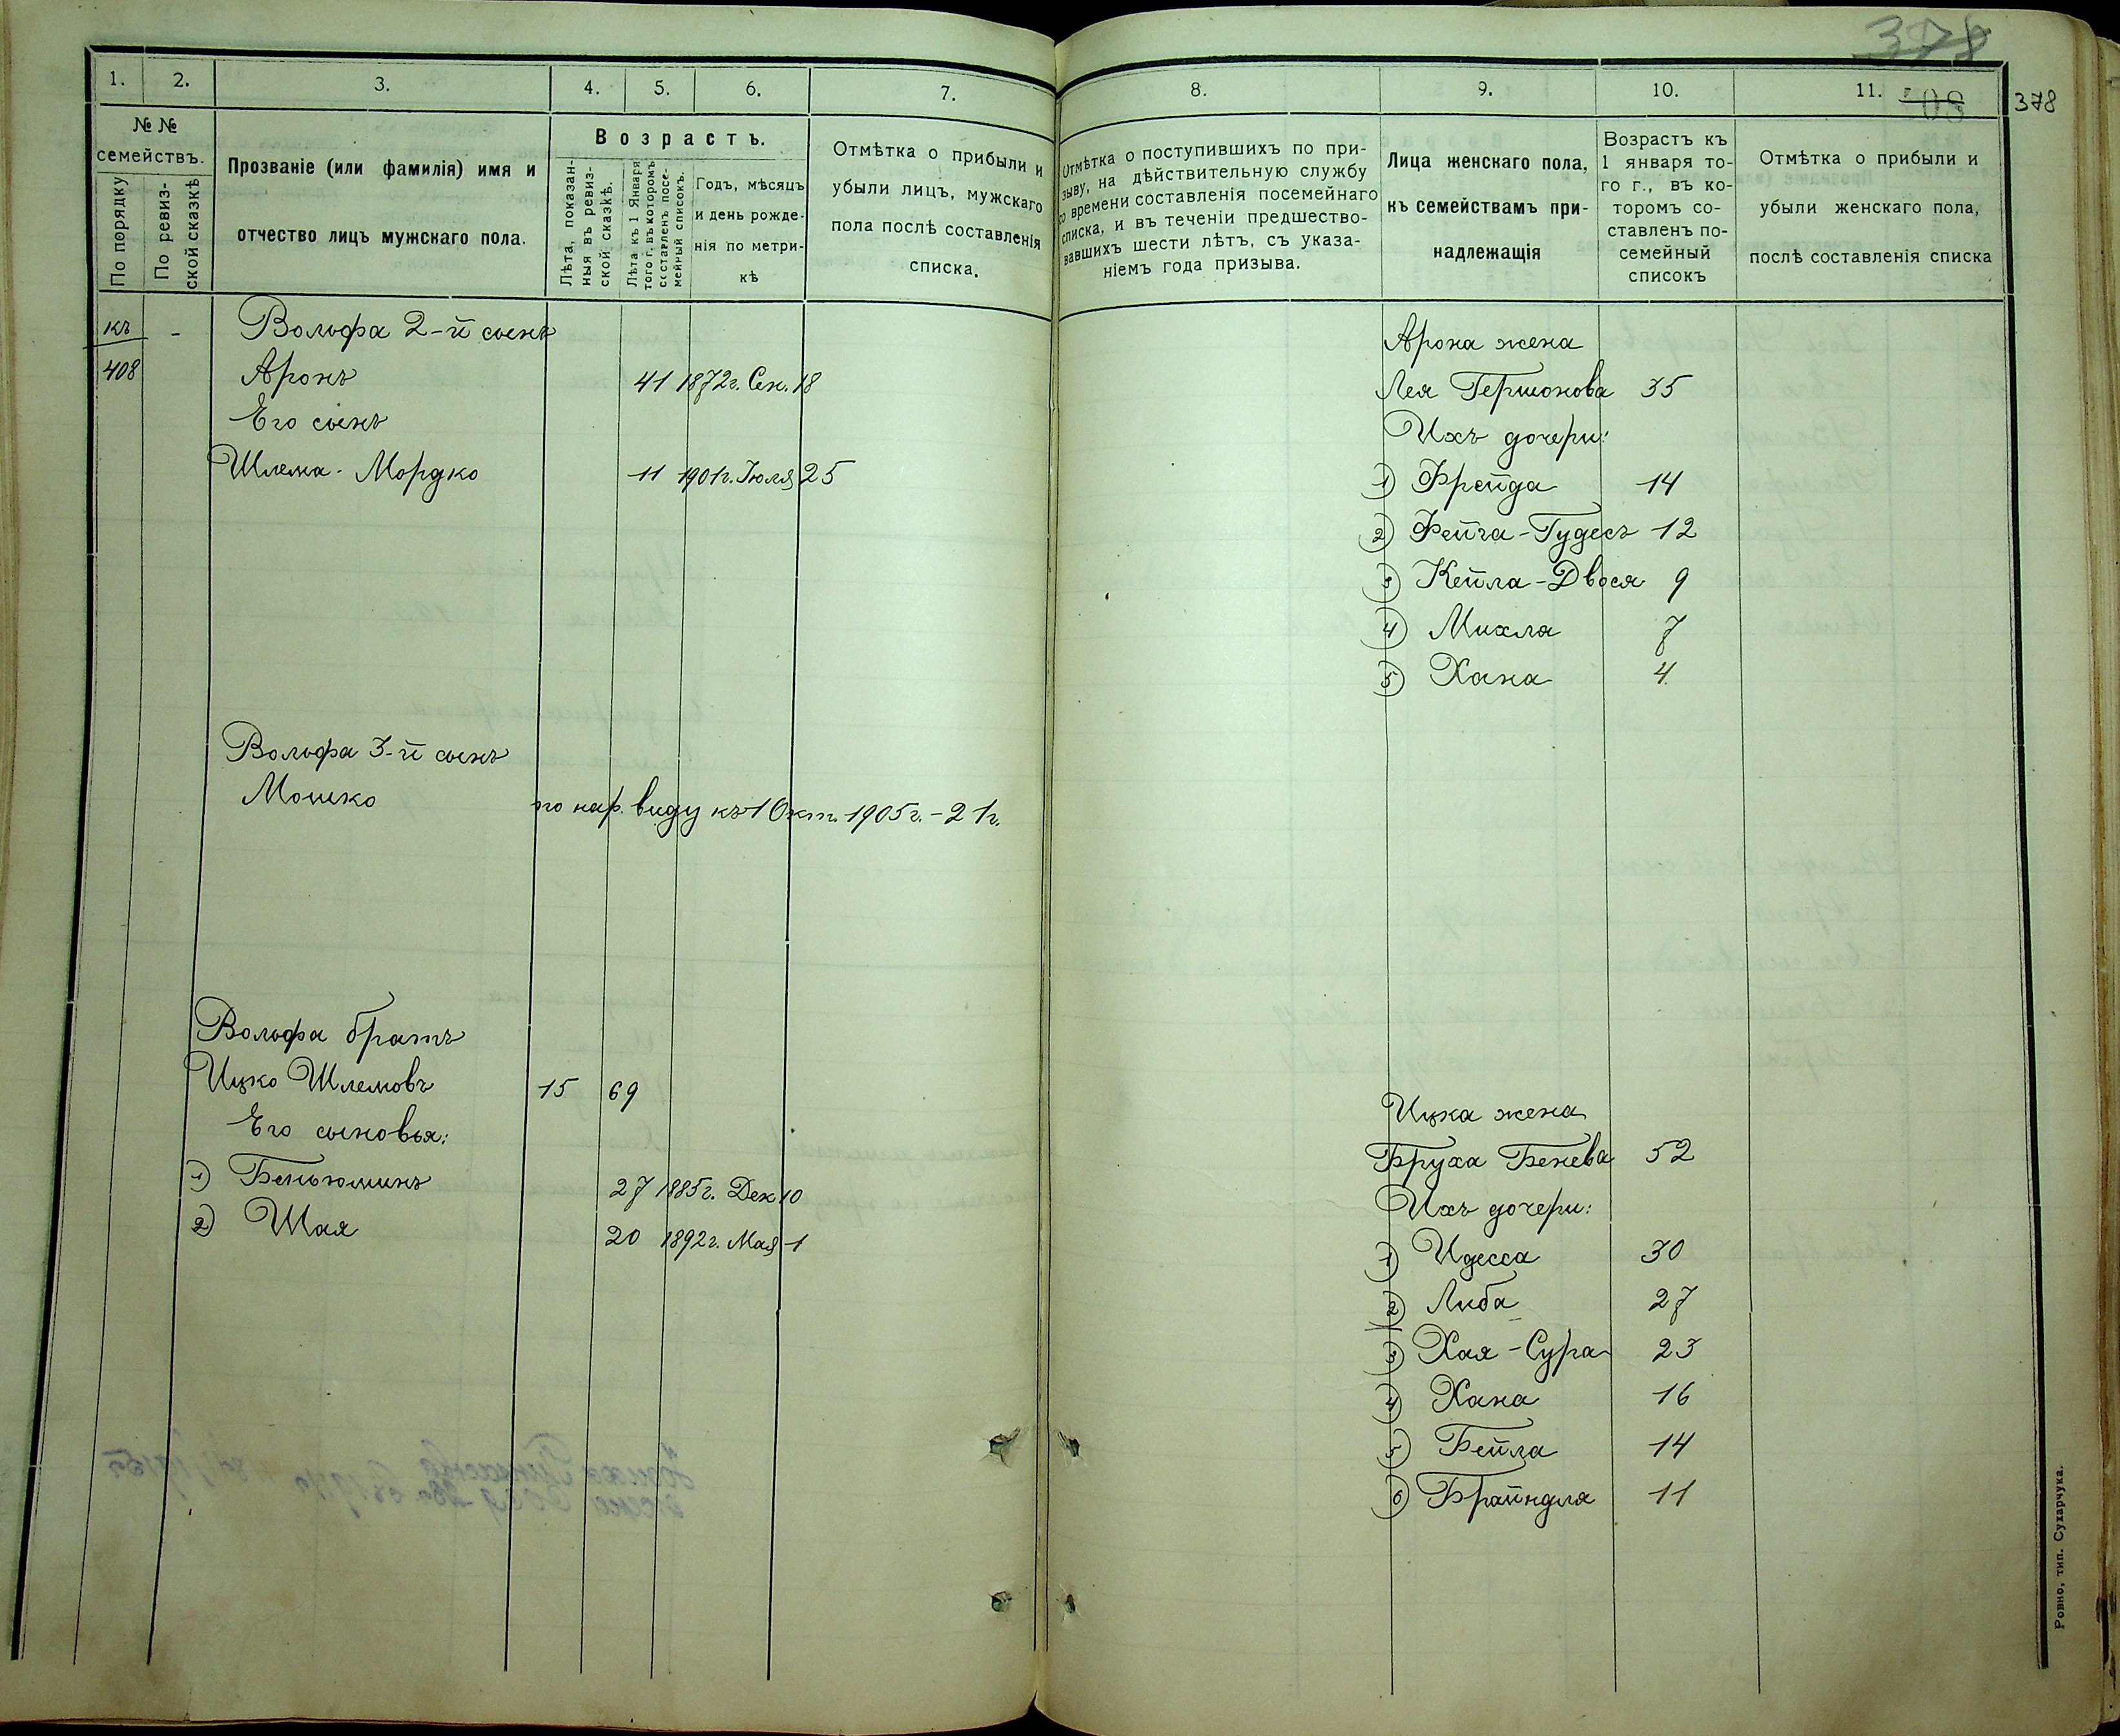 378
1.
2.
3.
4.
5.
6.
7.
№ №
семействъ.
По порядку
По ревиз-
ской сказкѣ
Прозваніе (или фамилія) имя и
отчество лицъ мужскаго пола.
Возрастъ.
Лѣта, показан-
ныя въ ревиз-
ской сказкѣ.
Лѣта къ 1 Января
того г. въ которомъ
составленъ посе-
мейный списокъ.
Годъ, мѣсяцъ
и день рожде-
нія по метри-
кѣ
Отмѣтка о прибыли и
убыли лицъ, мужскаго
пола послѣ составленія
списка.
къ - Вольфа 2-й сынъ
408 Аронъ 41 1872г. Сен. 18
Его сынъ
Шлема-Мордко 11 1901г. Іюля 25
Вольфа 3-й сынъ
Мошко по нар. виду къ 1 Окт. 1905г. - 21г.
Вольфа братъ
Ицко Шлемовъ 15 69
Его сыновья:
1) Беньюминъ 27 1885г. Дек 10
2) Шая 20 1892г. Мая 1
8.
9.
10.
11.
08
378
Отмѣтка о поступившихъ по при-
зыву, на дѣйствительную службу
со времени составленія посемейнаго
списка, и въ теченіи предшество-
вавшихъ шести лѣтъ, съ указа-
ніемъ года призыва.
Лица женскаго пола,
къ семействамъ при-
надлежащія
Возрастъ къ
1 января то-
го г., въ ко-
торомъ со-
ставленъ по-
семейный
списокъ
Отмѣтка о прибыли и
убыли женскаго пола,
послѣ составленія списка
Арона жена
Лея Гершонова 35
Ихъ дочери:
1) Фрейда 14
2) Фейга-Гудесъ 12
3) Кейла-Двося 9
4) Михля 7
5) Хана 4
Ицка жена
Бруха Бенева 52
Ихъ дочери:
1) Идесса 30
2) Либа 27
3) Хая-Сура 23
4) Хана 16
5) Бейла 14
6) Брайндля 11
Ровно, тип. Сухарчука.